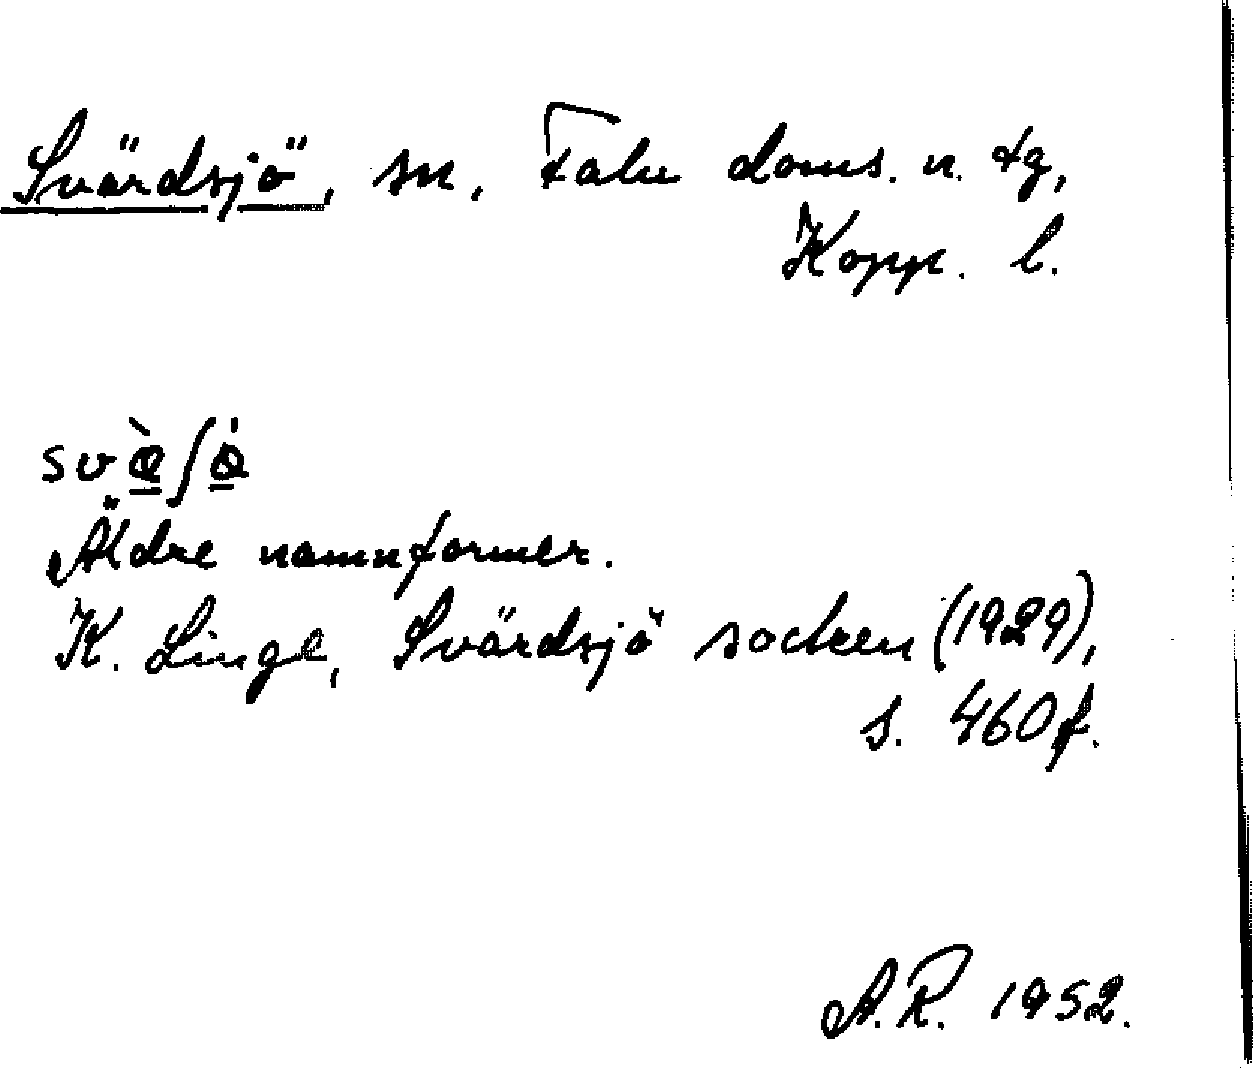 Svärdsjö, sn, Falu doms. n. tg,
Kopp. l.
Äldre namnformer.
K. Linge, Svärdsjö socken (1929),
s. 460 f.
A.R. 1952.